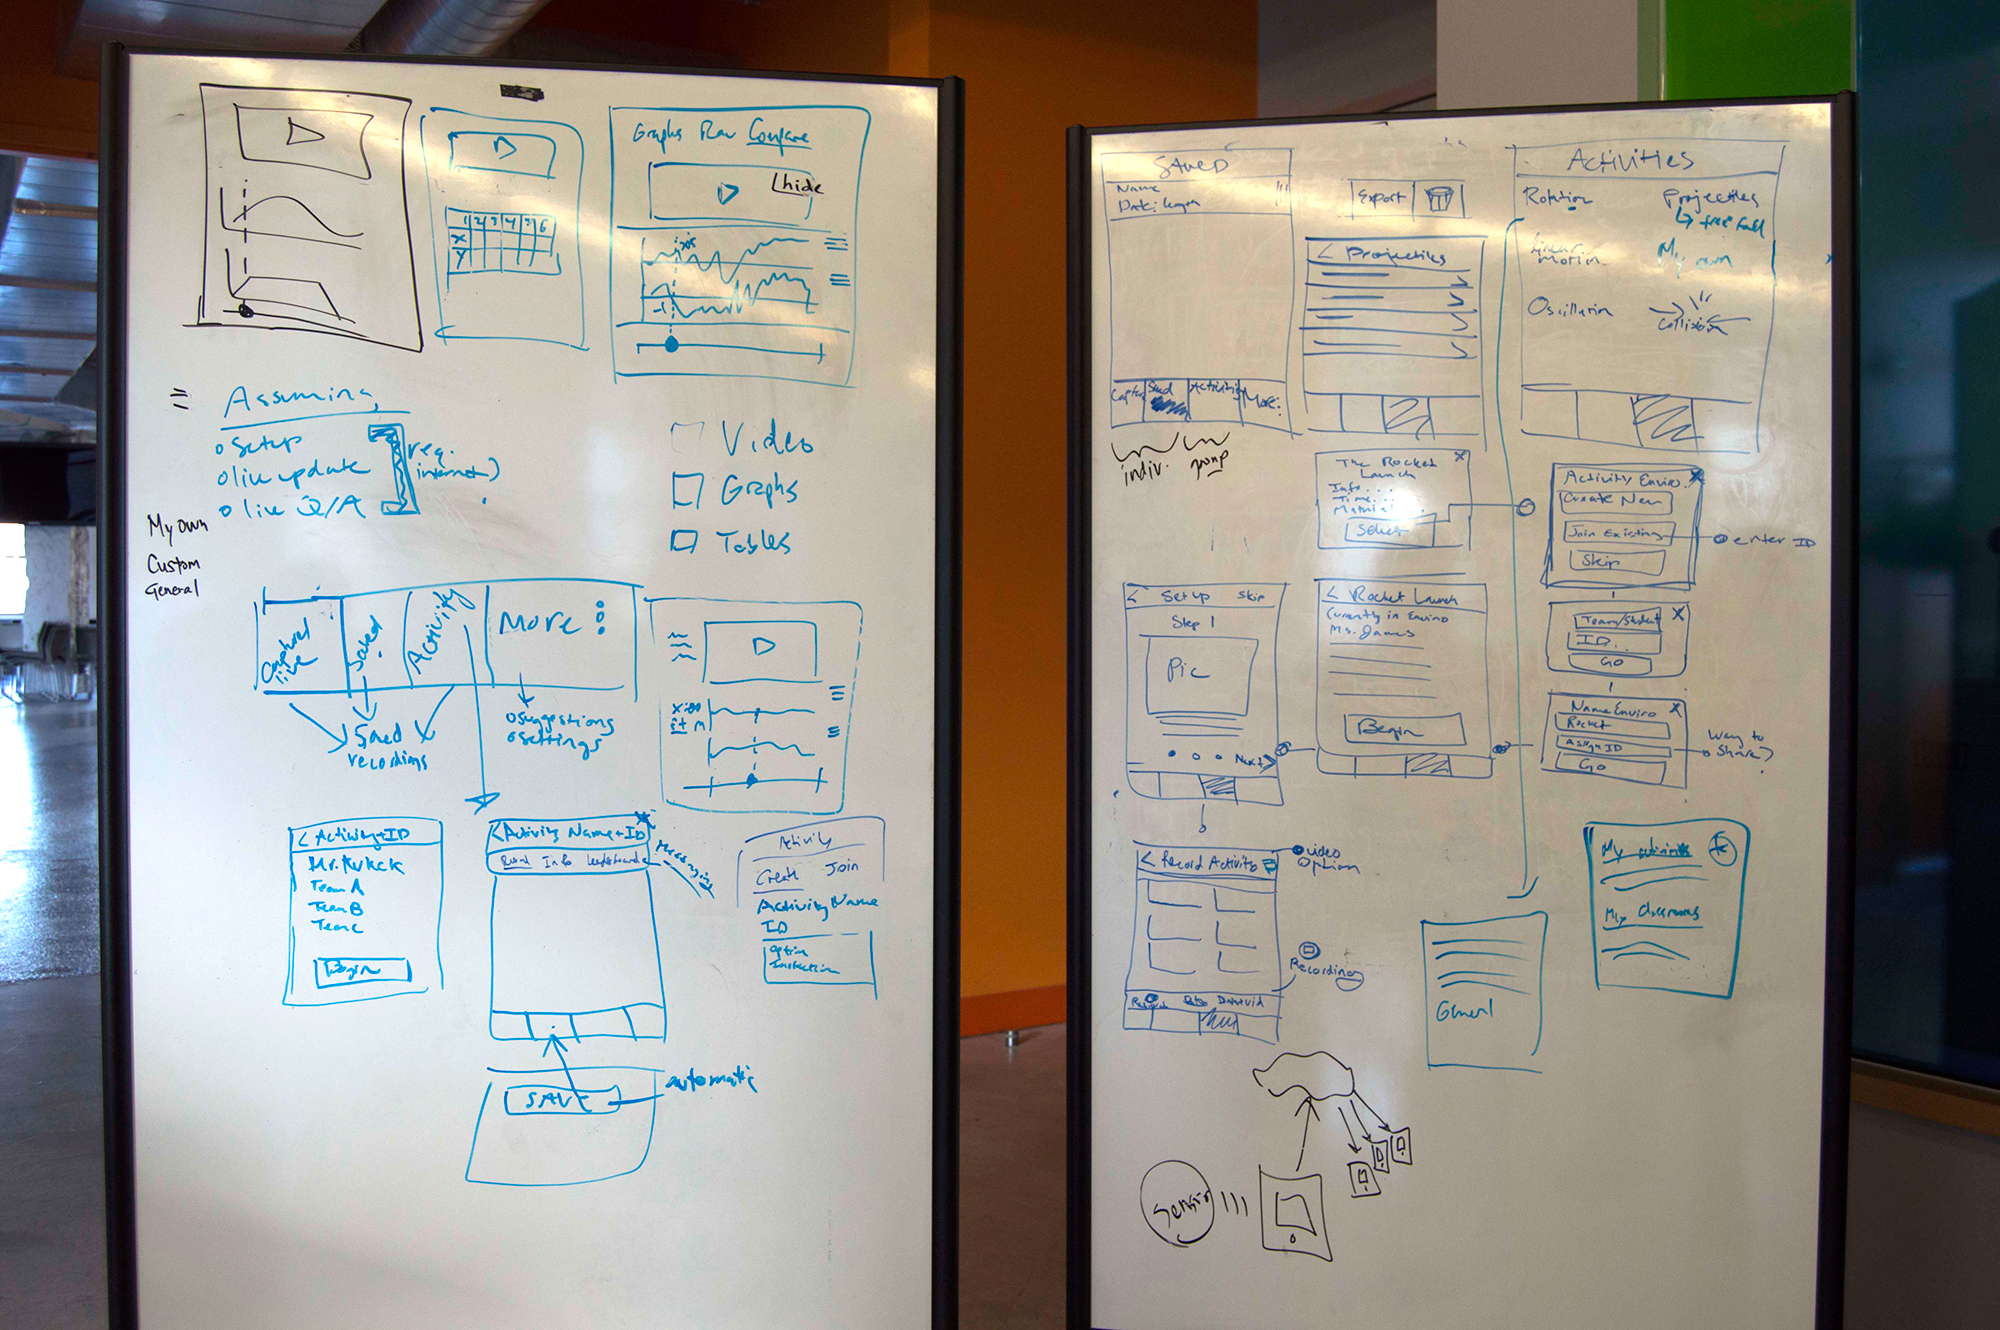 Graphs Raw Compare
hide
1 2 3 4 5 6
X
Y
Assuming
setup
live update
live Q/A
req.
internet)
Video
Graphs
Tables
My own
Custom
General
live
Saved
Activity
More
Saved
recordings
suggestions
settings
Activity+ID
Team A
Team B
Team C
Begin
Activity Name+ID
Info
Messaging
Activity
Create Join
Activity Name
ID
option
SAVE
automatic
SAVED
Name
Export
Saved
Activities
More
indiv.
group
Projectiles
Activities
Rotation
Projectiles
free fall
Linear
Motion
My own
Oscillation
Collision
The Rocket
Launch
Info...
Time...
Select
Activity Enviro.
Create New
Join Existing
enter ID
Skip
Setup Skip
Step 1
Pic
Next
Rocket Launch
Currently in Enviro
Ms. James
Begin
Team/Student
ID..
GO
Name Enviro
Rocket
Assign ID
GO
Way to
Share?
Record Activity
Video
Option
Recording
My activities
My classrooms
General
Sensor